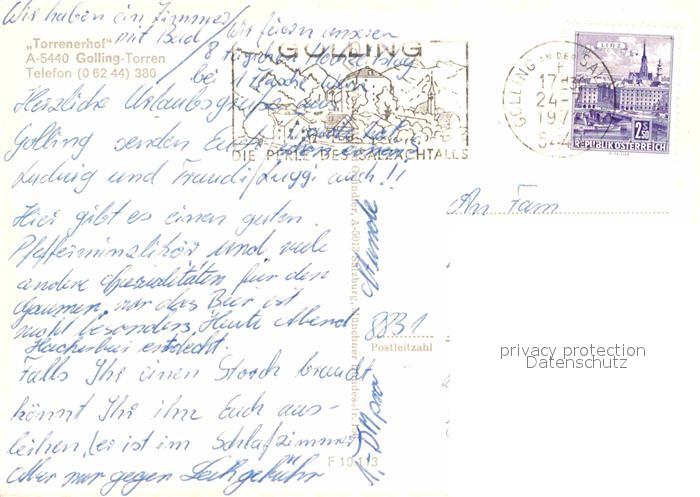 Wir haben ein Zimmer
mit Bad / Wir feiern unseren
8 Hochzeitstag
bei 1 Flasche Wein
"Torrenerhof"
A-5440 Golling-Torren
Telefon (0 62 44) 380
Herzliche Urlaubsgrüße aus
Golling senden Euch
Ludwig und Traudi/Luggi auch!!
Hier gibt es einen guten
Pfefferminzlikör und viele
andere Spezialitäten für den
Gaumen, nur das Bier ist
nicht besonders. Heute Abend
entdeckt.
Falls Ihr einen Storch braucht
könnt Ihr ihn Euch aus-
leihen, (er ist im Schlafzimmer
Aber nur gegen Leihgebühr
F 10 113
1.- DM pro Stunde
GOLLING
DIE PERLE DES SALZACHTALLS
GOLLING AN DER SALZ
24.
197
544
LINZ
2.50
REPUBLIK ÖSTERREICH
An Fam
8831
Postleitzahl
privacy protection
Datenschutz